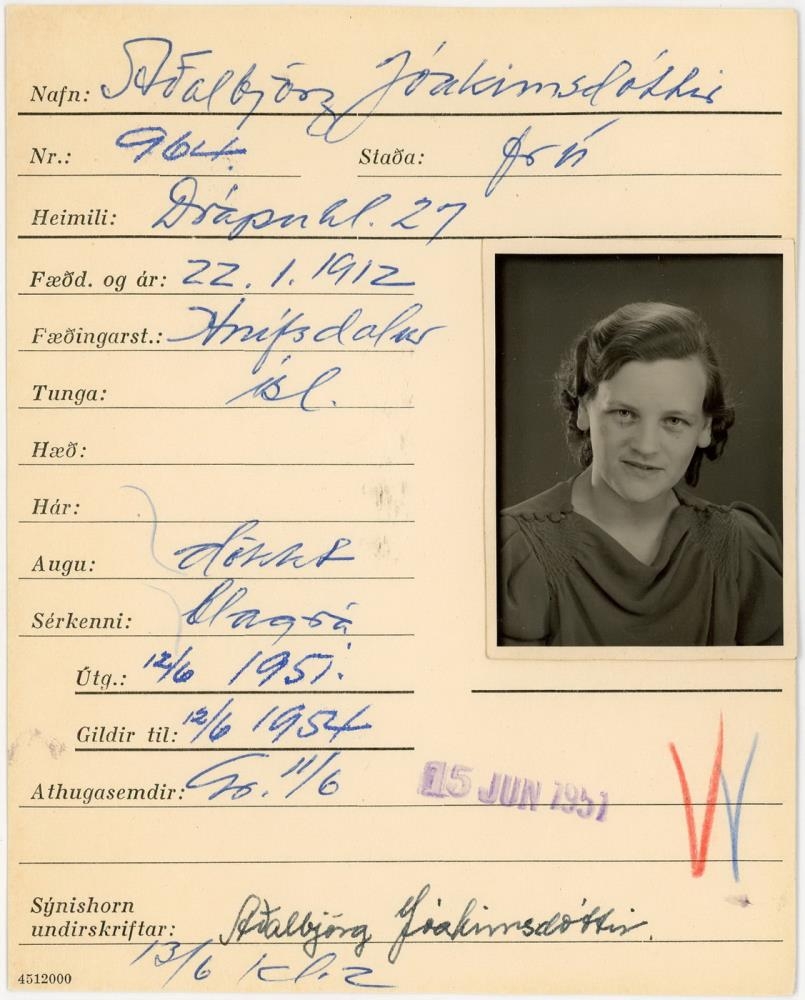 Nafn: Aðalbjörg Jóakimsdóttir
Nr.: 964. Staða: frú
Heimili: Drápuhl. 27
Fæðd. og ár: 22. 1. 1912
Fæðingarst.: Hnífsdalur
Tunga: ísl.
Hæð:
Hár:
Augu: dökkt
Sérkenni: blágrá
Útg.: 12/6 1951.
Gildir til: 12/6 1954
Athugasemdir: 11/6
15 JUN 1951
Sýnishorn
undirskriftar: Aðalbjörg Jóakimsdóttir.
13/6 kl. 2
4512000